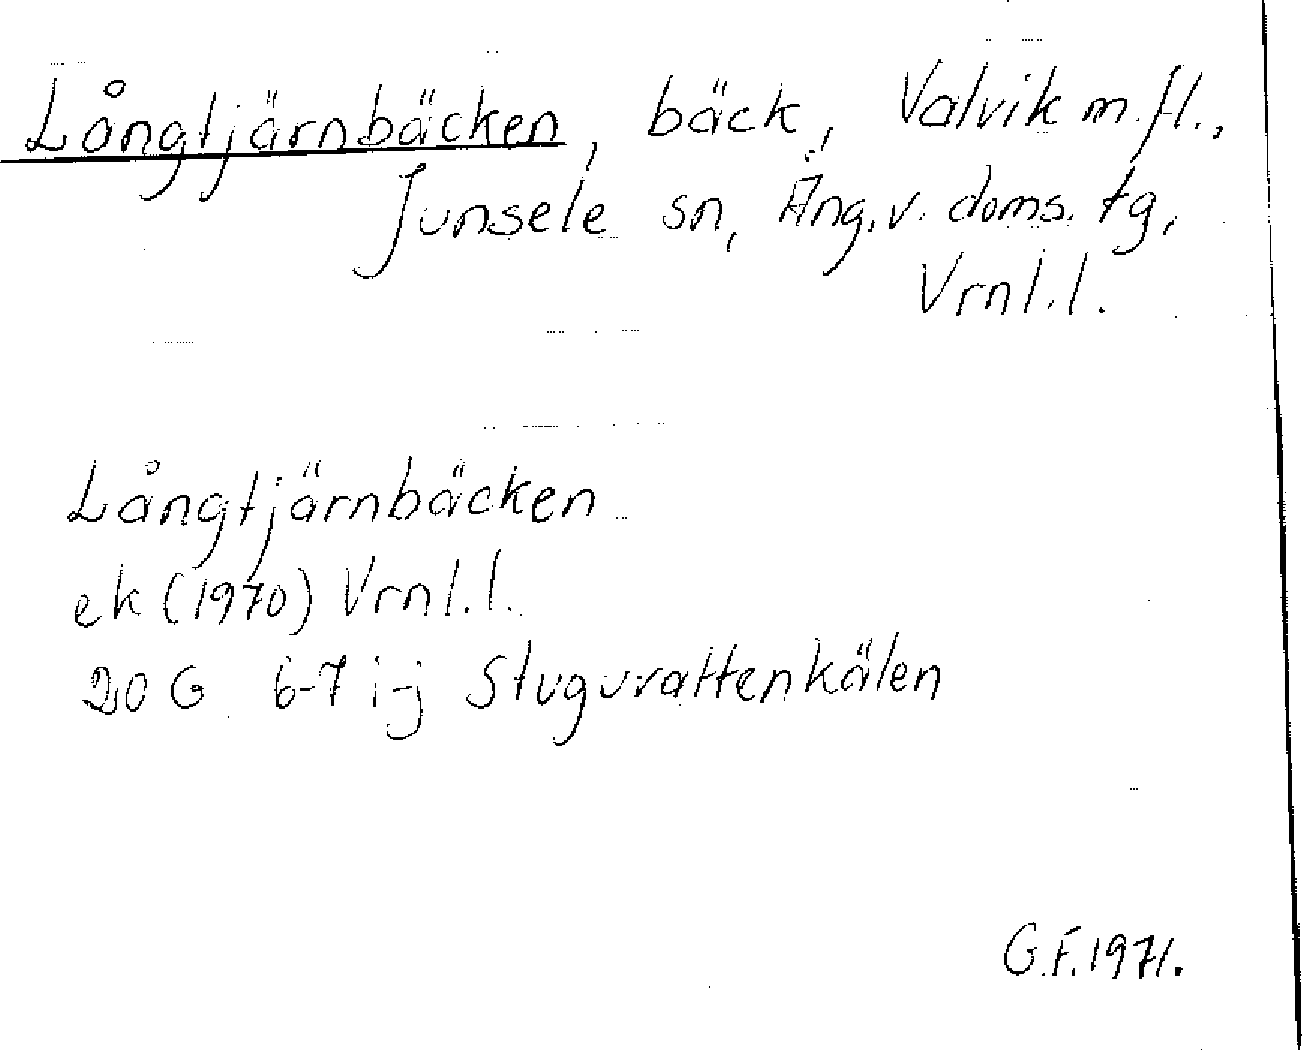 Långtjärnbäcken, bäck, Valvik m.fl.,
Junsele sn, Ång.v. doms. tg,
Vrnl.l.
Långtjärnbäcken
ek (1970) Vrnl.l.
20 G 6-7 i-j Stuguvattenkälen
G.F. 1971.